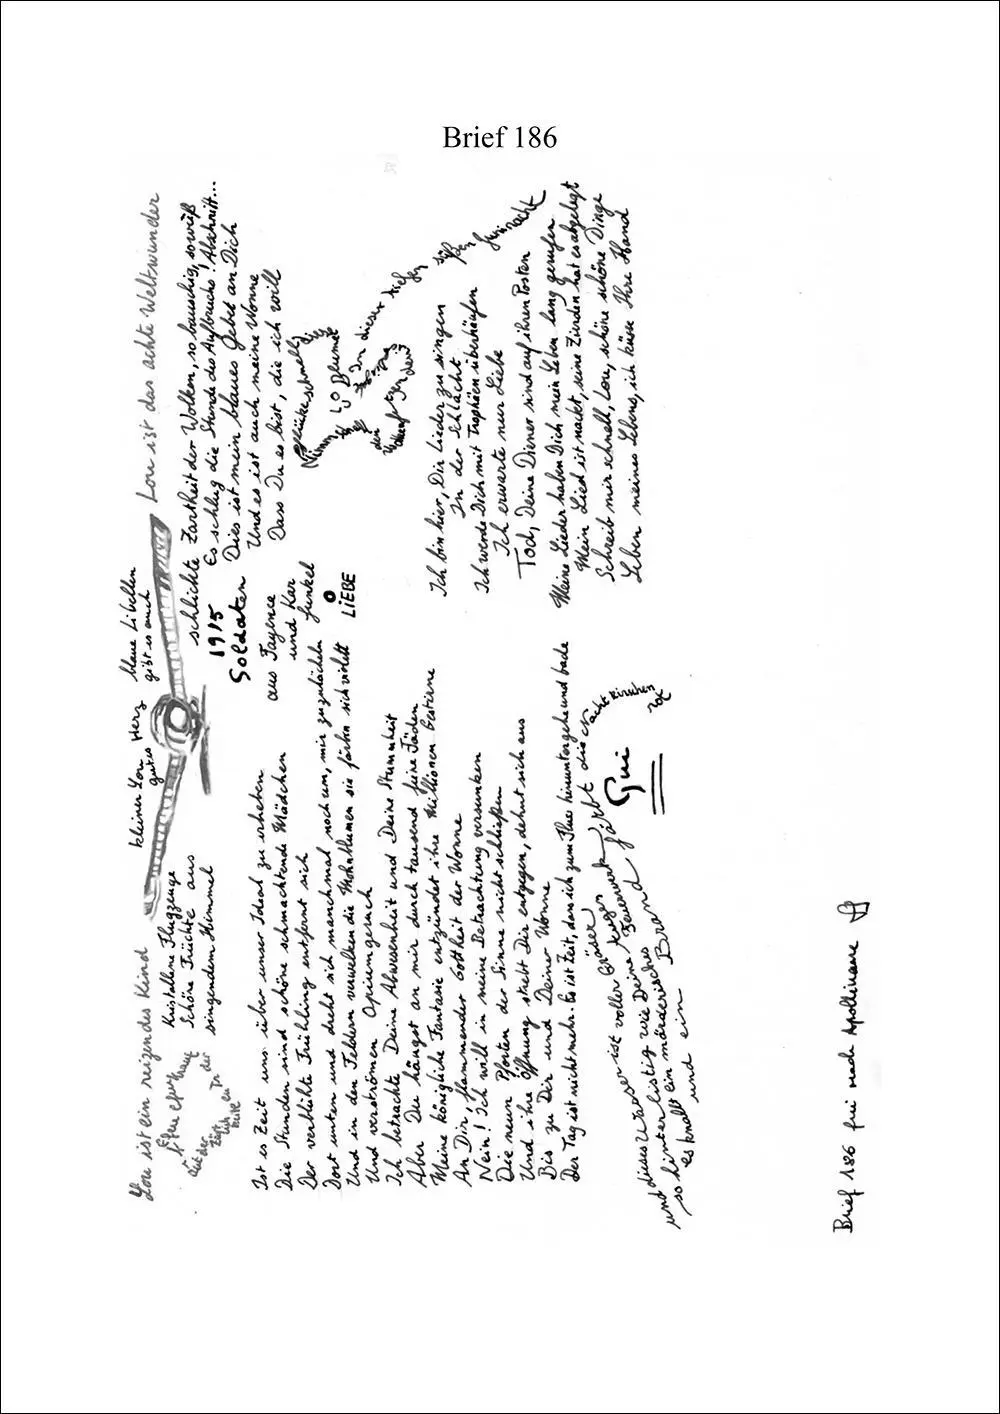 Brief 186
Lou ist ein reizendes Kind
Lou ist das achte Weltwunder
kleiner Lou
gutes Herz
blaue Libellen
gibt es auch
Kristallene Flugzeuge
Schöne Früchte aus
singendem Himmel
schlichte Zartheit der Wolken, so bauschig, so weiß
1915
Soldaten
aus Fayence
und Kar
funkel
O
LiEBE
Es schlug die Stunde des Aufbruchs! Abschnitt...
Dies ist mein blaues Gebet an Dich
Und es ist auch meine Wonne
Dass Du es bist, die ich will
Ist es Zeit uns über unser Ideal zu erheben
Die Stunden sind schöne schmachtende Mädchen
Der verblühte Frühling entfernt sich
Dort unten und dreht sich manchmal noch um, mir zuzulächeln
Und in den Feldern verwelken die Mohnblumen sie färben sich violett
Und verströmen Opiumgeruch
Ich betrachte Deine Abwesenheit und Deine Stummheit
Aber Du hängst an mir durch tausend feine Fäden
Meine königliche Fantasie entzündet ihre Millionen Gestirne
An Dir, flammender Gottheit der Wonne
Nein! Ich will in meine Betrachtung versunken
Die neun Pforten der Sinne nicht schließen
Und ihre Öffnung strebt Dir entgegen, dehnt sich aus
Bis zu Dir und Deiner Wonne
Der Tag ist nicht mehr. Es ist Zeit, dass ich zum Fluss hinuntergehe und bade
und dieses Wasser ist voller Gräser
so hinterlistig wie Deine Feuerwerk
es knallt ein mörderisches
und ein Brand färbt die Nacht kirschen
rot
Gui
Pflücke schnell
Nimm
die
LOU Blume
In dieser tiefen süßen Juninacht
Ich bin hier, Dir Lieder zu singen
In der Schlacht
Ich werde Dich mit Trophäen überhäufen
Ich erwarte nur Liebe
Toch, Deine Diener sind auf ihren Posten
Meine Lieder haben Dich mein Leben lang gerufen
Mein Lied ist nackt, seine Sünden hat es abgelegt
Schreib mir schnell, Lou, schöne schöne Dinge
Leben meines Lebens, ich küsse Ihre Hand
Brief 186 frei nach Apollinaire